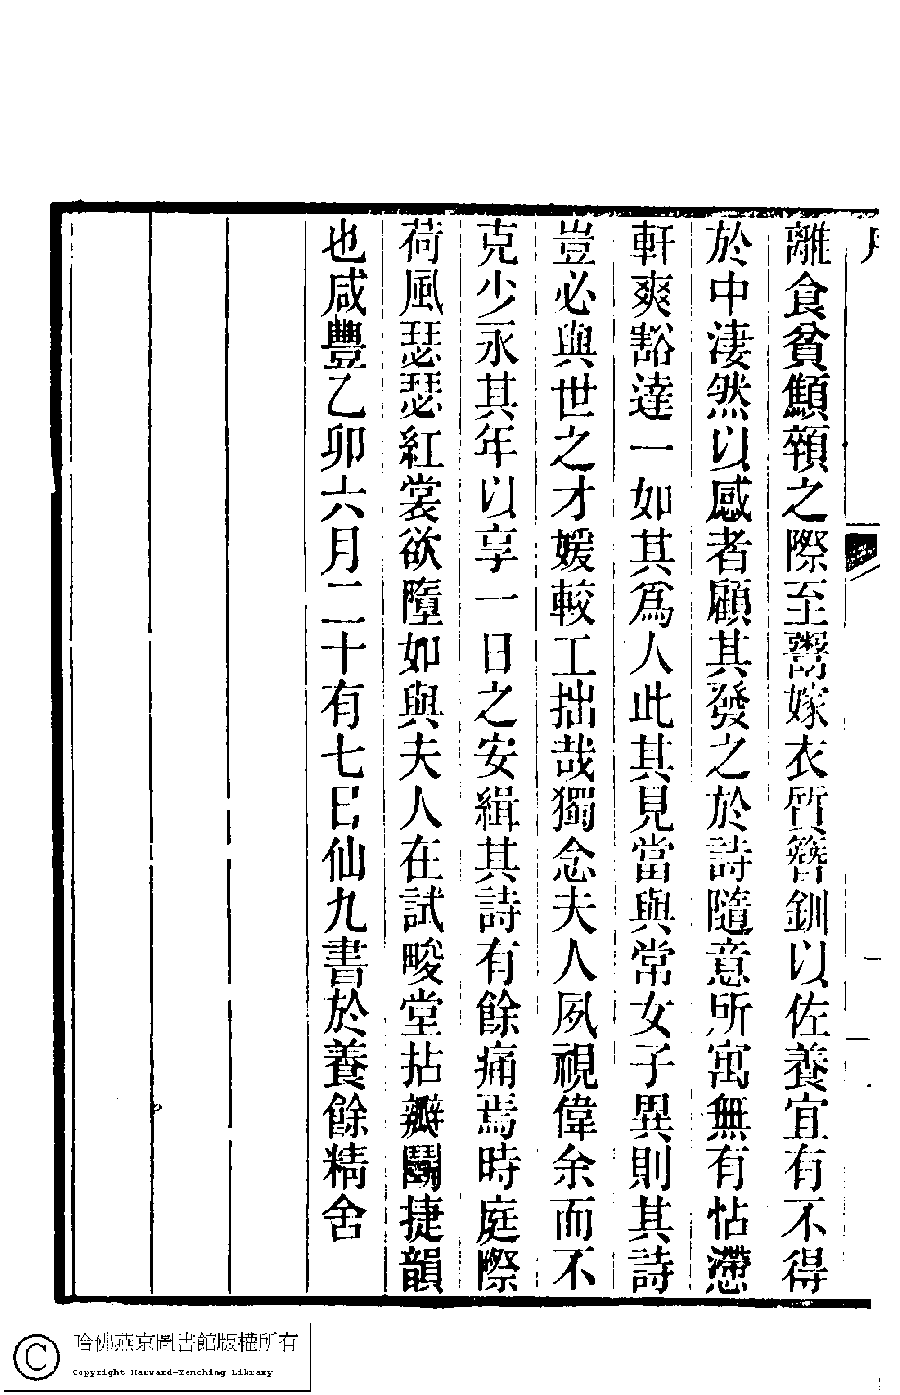 離食貧顦顇之際至鬻嫁衣質簪釧以佐養宜有不得
於中淒然以感者顧其發之於詩隨意所寓無有怗懘
軒爽豁達一如其爲人此其見當與常女子異則其詩
豈必與世之才媛較工拙哉獨念夫人夙視偉余而不
克少永其年以享一日之安緝其詩有餘痛焉時庭際
荷風瑟瑟紅裳欲墮如與夫人在試畯堂拈瓣鬭捷韻
也咸豐乙卯六月二十有七日仙九書於養餘精舍
哈佛燕京圖書館版權所有
Copyright Harvard-Yenching Library